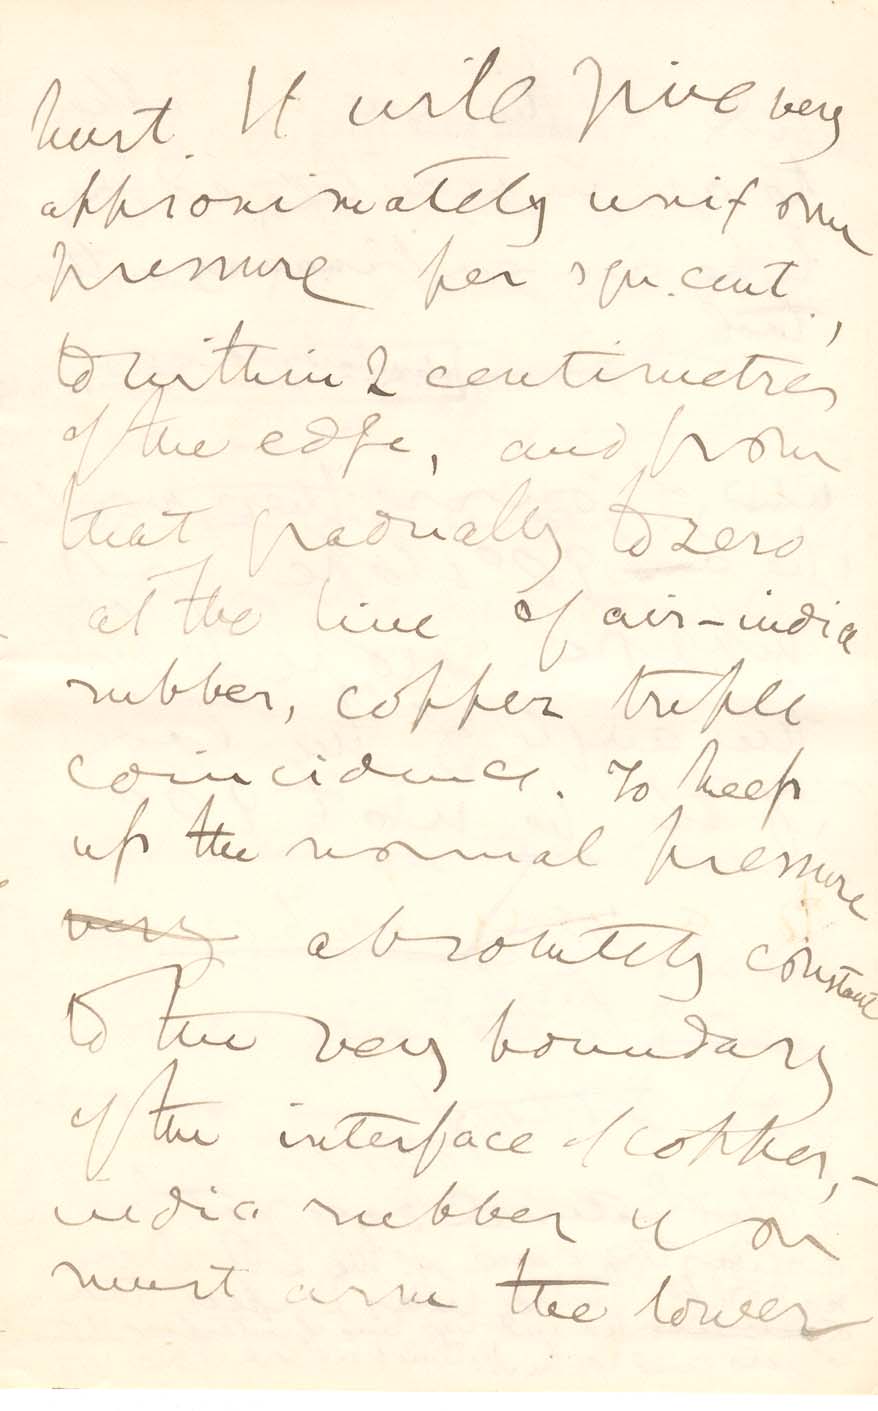 hurt. It will give very
approximately uniform
pressure per squ. cent.,
to within 2 centimetres
of the edge, and from
that gradually to zero
at the line of air-india
rubber, copper triple
coincidence. To keep
up the normal pressure
very absolutely constant
to the very boundary
of the interface of copper,-
india rubber you
must arm the lower